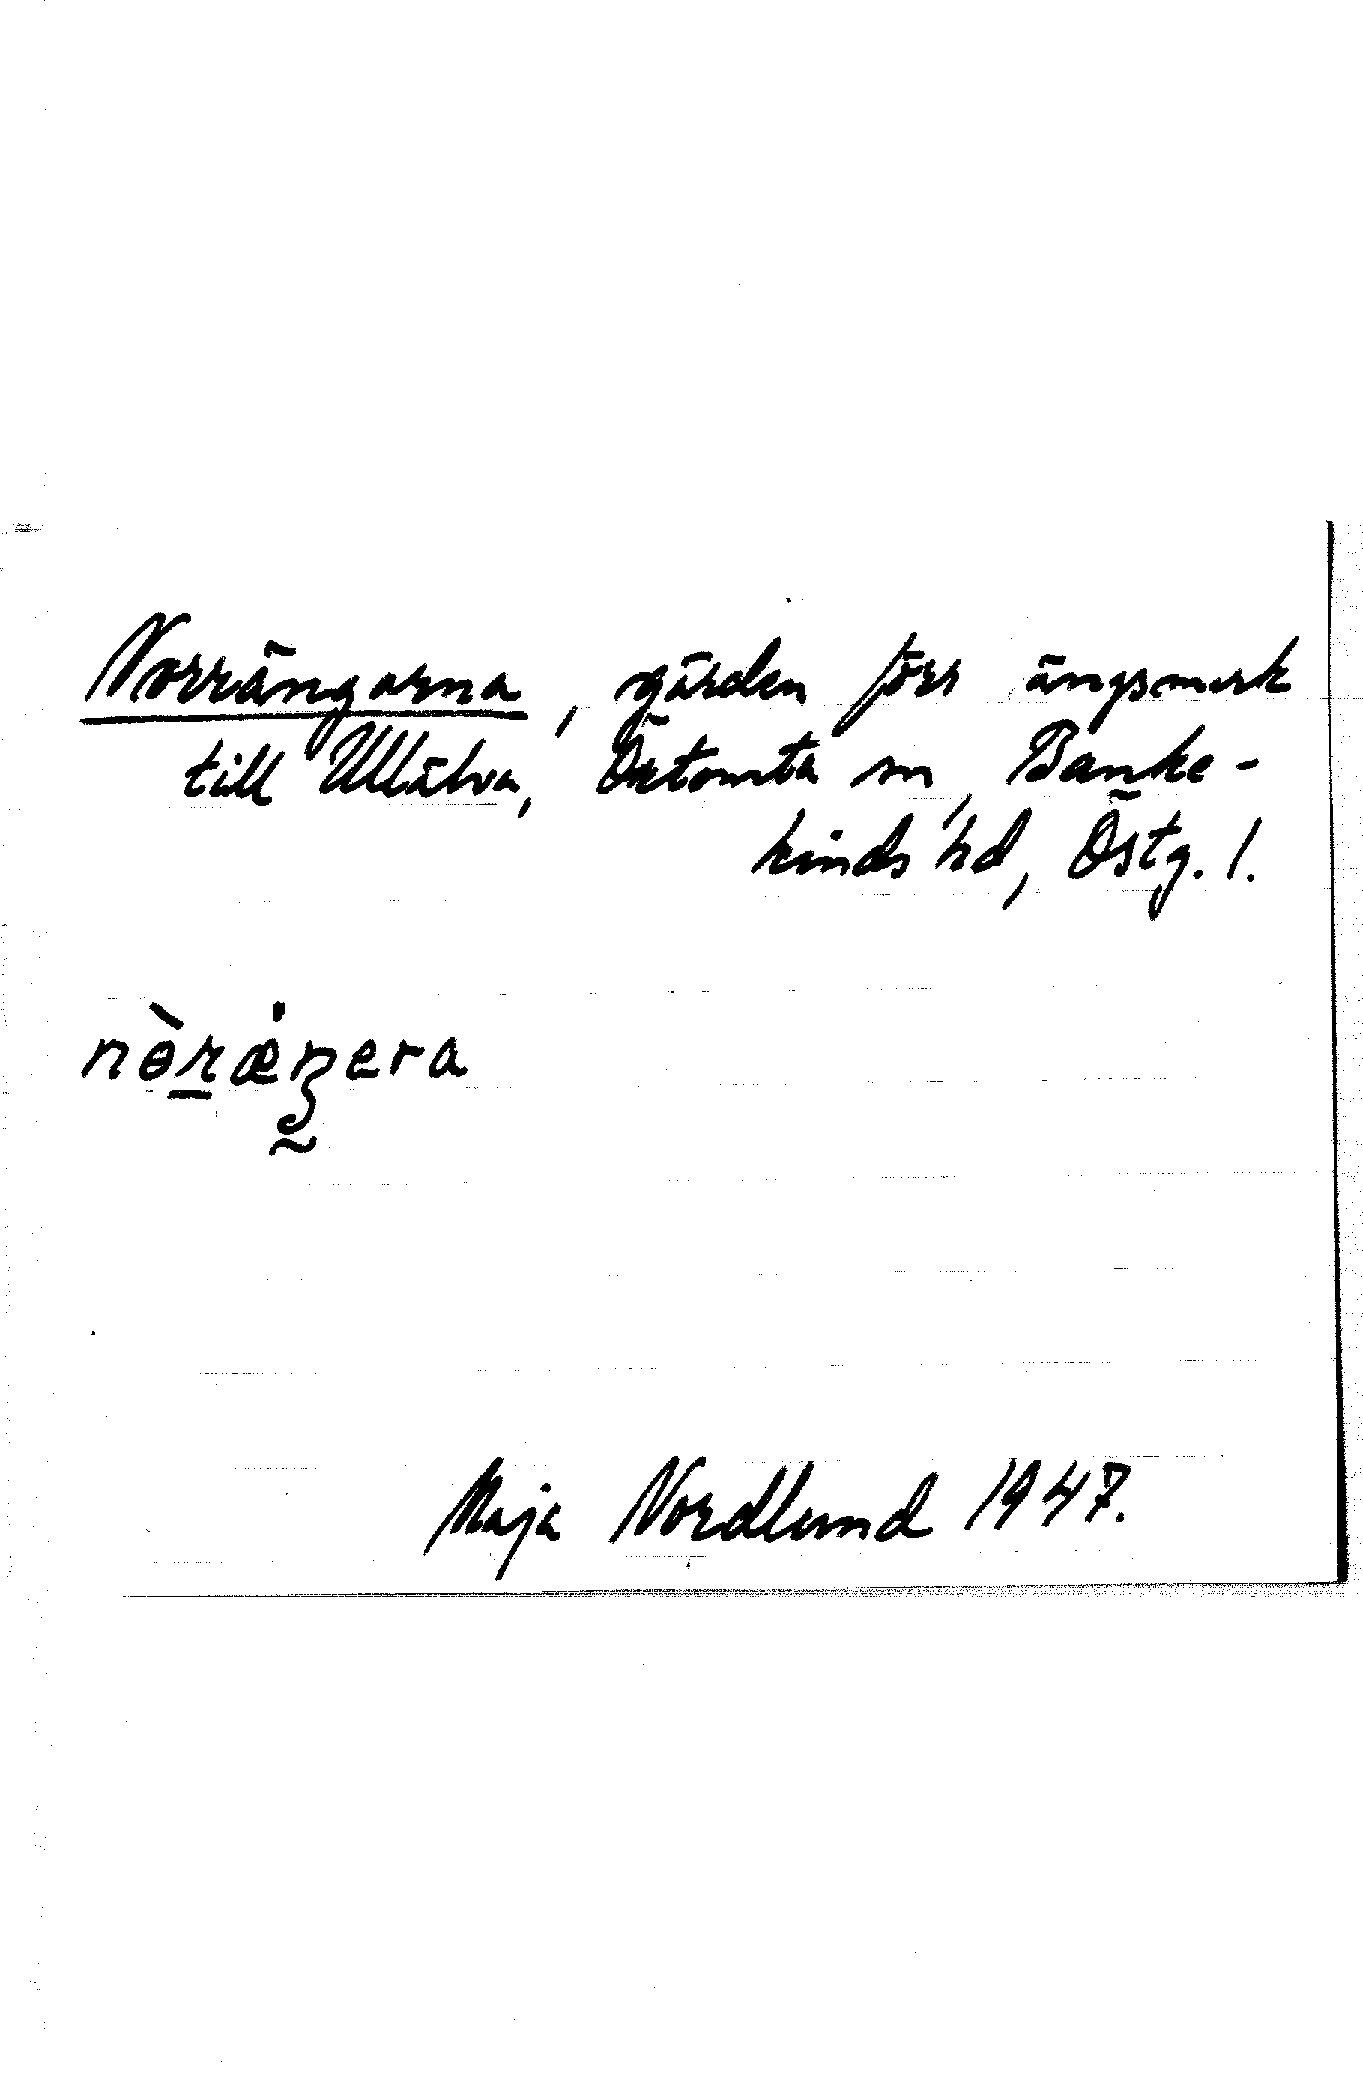 Norrängarna, gärden förr ängsmark
till Ullälva, Örtomta sn, Banke-
kinds hd, Östg. l.
nòræ̇ŋera
Maja Nordlund 1947.